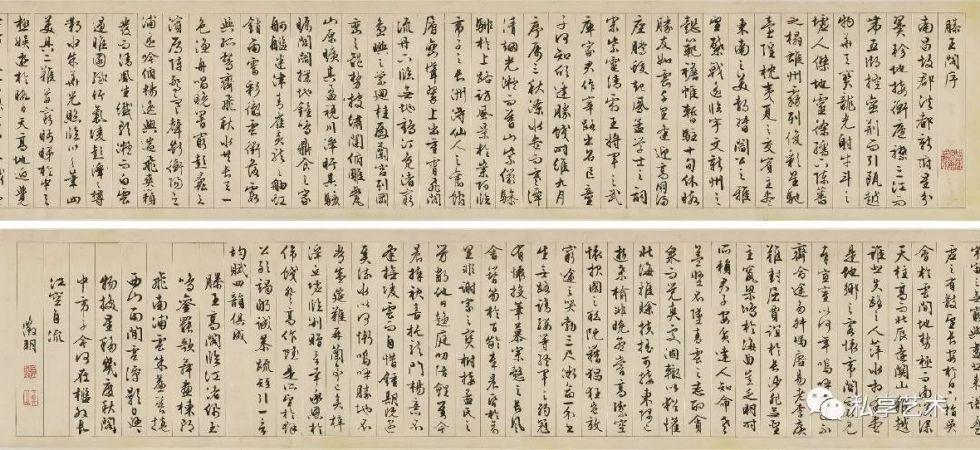 滕王閣序
南昌故郡洪都新府星分
翼軫地接衡廬襟三江而
帶五湖控蠻荊而引甌越
物華天寶龍光射牛斗之
墟人傑地靈徐孺下陳蕃
之榻雄州霧列俊彩星馳
臺隍枕夷夏之交賓主盡
東南之美都督閻公之雅
望棨戟遙臨宇文新州之
懿範襜帷暫駐十旬休暇
勝友如雲千里逢迎高朋滿
座騰蛟起鳳孟學士之詞
宗紫電清霜王將軍之武
庫家君作宰路出名區童
子何知躬逢勝餞時維九月
序屬三秋潦水盡而寒潭
清烟光凝而暮山紫儼驂
騑於上路訪風景於崇阿臨
帝子之長洲得仙人之舊館
層巒聳翠上出重霄飛閣
流丹下臨無地鶴汀鳧渚窮
島嶼之縈迴桂殿蘭宮列岡
巒之體勢披繡闥俯雕甍
山原曠其盈視川澤盱其駭
矚閭閻撲地鐘鳴鼎食之家
舸艦迷津青雀黃龍之舳虹
銷雨霽彩徹雲衢落霞
與孤鶩齊飛秋水共長天一
色漁舟唱晚響窮彭蠡之
濱雁陣驚寒聲斷衡陽之
浦遙吟俯暢逸興遄飛爽籟
發而清風生纖歌凝而白雲
遏睢園綠竹氣凌彭澤之樽
鄴水朱華光照臨川之筆四
美具二難并窮睇眄於中天
極娛遊於暇日天高地迥覺
虛之有數望長安於日下指吳
會於雲間地勢極而南溟深
天柱高而北辰遠關山難越
誰悲失路之人萍水相逢盡
是他鄉之客懷帝閽而不見
奉宣室以何年嗚呼
齊命途多舛馮唐易老李廣
難封屈賈誼於長沙非無聖
主竄梁鴻於海曲豈乏明時
所賴君子安貧達人知命老
益堅不墜青雲之志酌貪
泉而覺爽處涸轍以猶懽
北海雖賒扶搖可接東隅已
逝桑榆非晚孟嘗高潔空
懷報國之心阮籍猖狂豈效
窮途之哭勃三尺微命一介書
生無路請纓等終軍之弱冠
有懷投筆慕宗愨之長風
舍簪笏於百齡奉晨昏於萬
里非謝家之寶樹接孟氏之
芳鄰他日趨庭叨陪鯉對今
晨捧袂喜托龍門楊意不
逢撫凌雲而自惜鍾期既遇
奏流水以何慚嗚呼勝地不
常盛筵難再蘭亭已矣梓
澤丘墟臨別贈言幸承恩於
偉餞登高作賦是所望於群
公敢竭鄙誠恭疏短引一言
均賦四韻俱成
滕王高閣臨江渚佩玉
鳴鸞罷歌舞畫棟朝
飛南浦雲朱簾暮捲
西山雨閒雲潭影日悠悠
物換星移幾度秋閣
中帝子今何在檻外長
江空自流
徵明
私享艺术